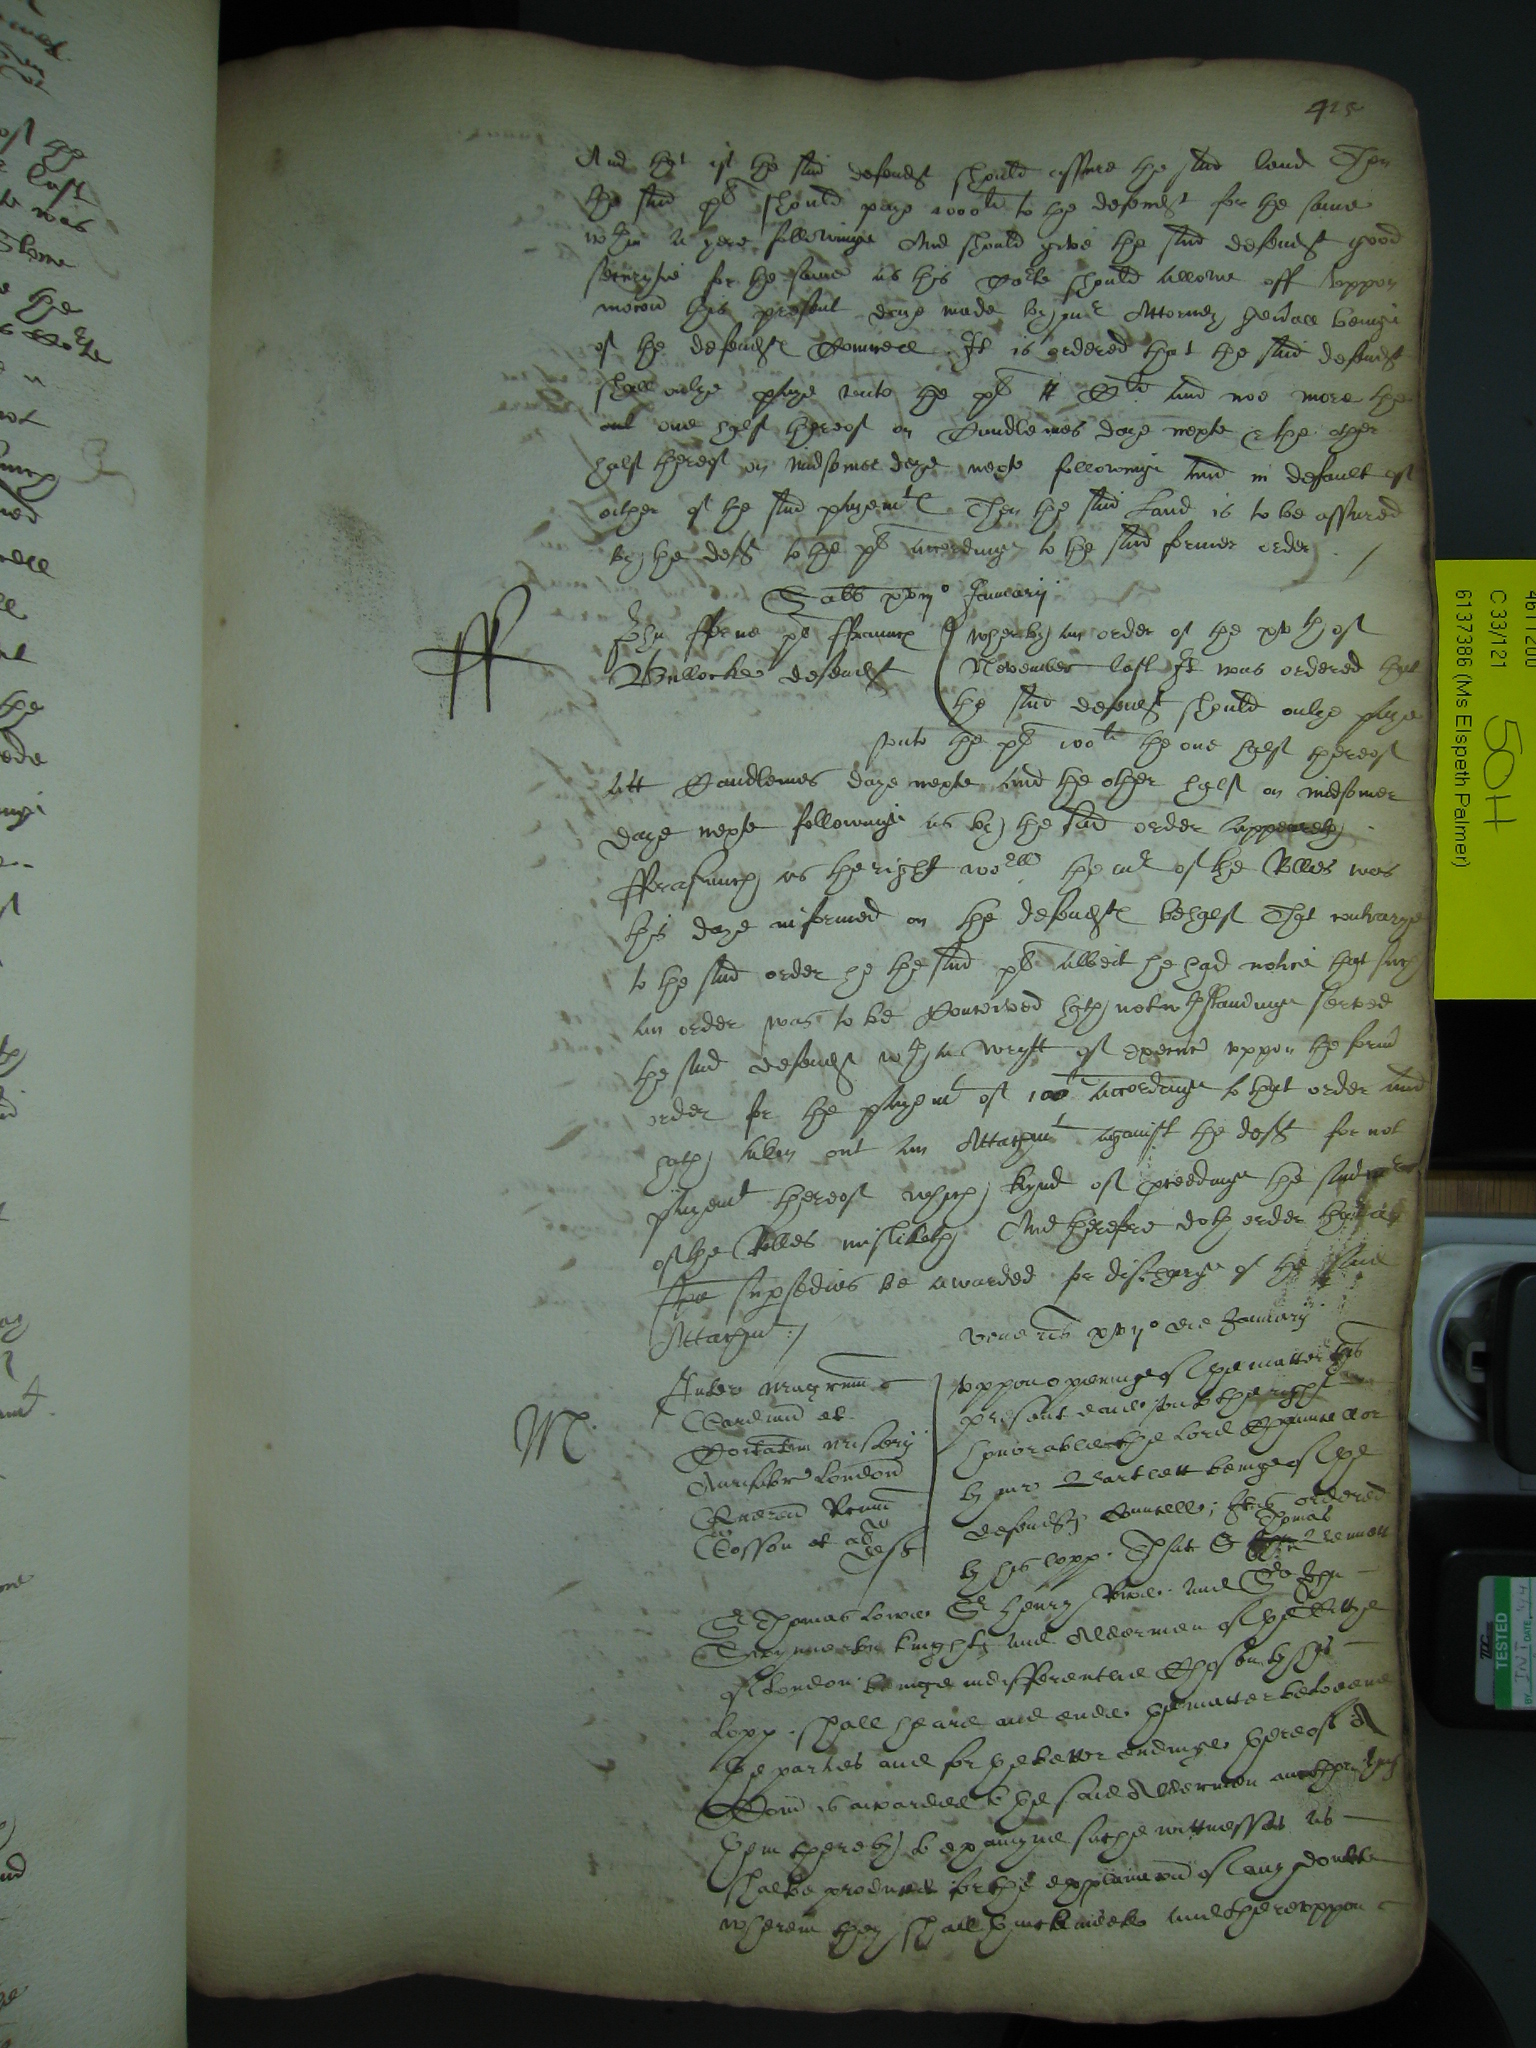 425
And that if the said defendt should assure the said land Then
the said pl should paye 1000li to the defendt for the same
wthin a yere followinge And should give the said defendt good
securytie for the same as this Corte should allowe off Vppon
mocon this present daye made by mr Attorney genall beinge
of the defendts Councell It is ordered that the said defendt
shall onlye paye unto the pl Cli and noe more the
one halfe thereof on Candlemes daye nexte & the other
halfe thereof on midsomer daye nexte followinge And in default of
either of the said paymts Then the said Land is to be assured
by the deft to the pl accordinge to the said former order
Sabb xviijo Januarij
ff
John fferne pl ffraunc
Bullocke defendt
Wher by an order of the xvth of
November last It was ordered that
the said defendt should onlye paye
unto the pl 100li the one halfe thereof
att Candlemes daye nexte and the other halfe on midsomer
daye nexte followinge as by the said order appeareth
fforasmuch as the right woll the mr of the Rolles was
this daye informed on the defendts behalfe That contrarye
to the said order he the said pl albeit he had notice that such
an order was to be Conceived hath notwthstandinge served
the said defendt wth a wrytt of execuc vppon the form
order for the paymt of 100li accordinge to that order and
hath taken out an Attachmt against the deft for not
paymt thereof which kynd of proceedinge the said mr
of the Rolles misliketh And therefore doth order that a
supsedias be awarded for discharge of the said
Attachmt
Veneris xvijo die Januarij
M
Inter
Gardian et
London
et al
deft
Vppon openinge of the matter this
present daie unto the right
honorable the Lord Chauncellor
by mr Bartlett beinge of the
defendts Councell; It is ordered
by his lopp. That Sr Thomas Bennett
Sr Thomas Lowe Sr Henry Rowe and Sr John
knights and Aldermen of the Cittye
of London beinge indifferentlie Chosen by his
lopp. shall heare and ende the matter betweene
the parties and for the better endinge thereof A
Com is awarded to the said Aldermen authorisinge
them thereby to examyne suche wittnesses as
shalbe produced for the explanacon of any doubte
wherein they shall thinke meete and therevppon
C 33/121
50H
6137386 (Ms Elspeth Palmer)
TESTED